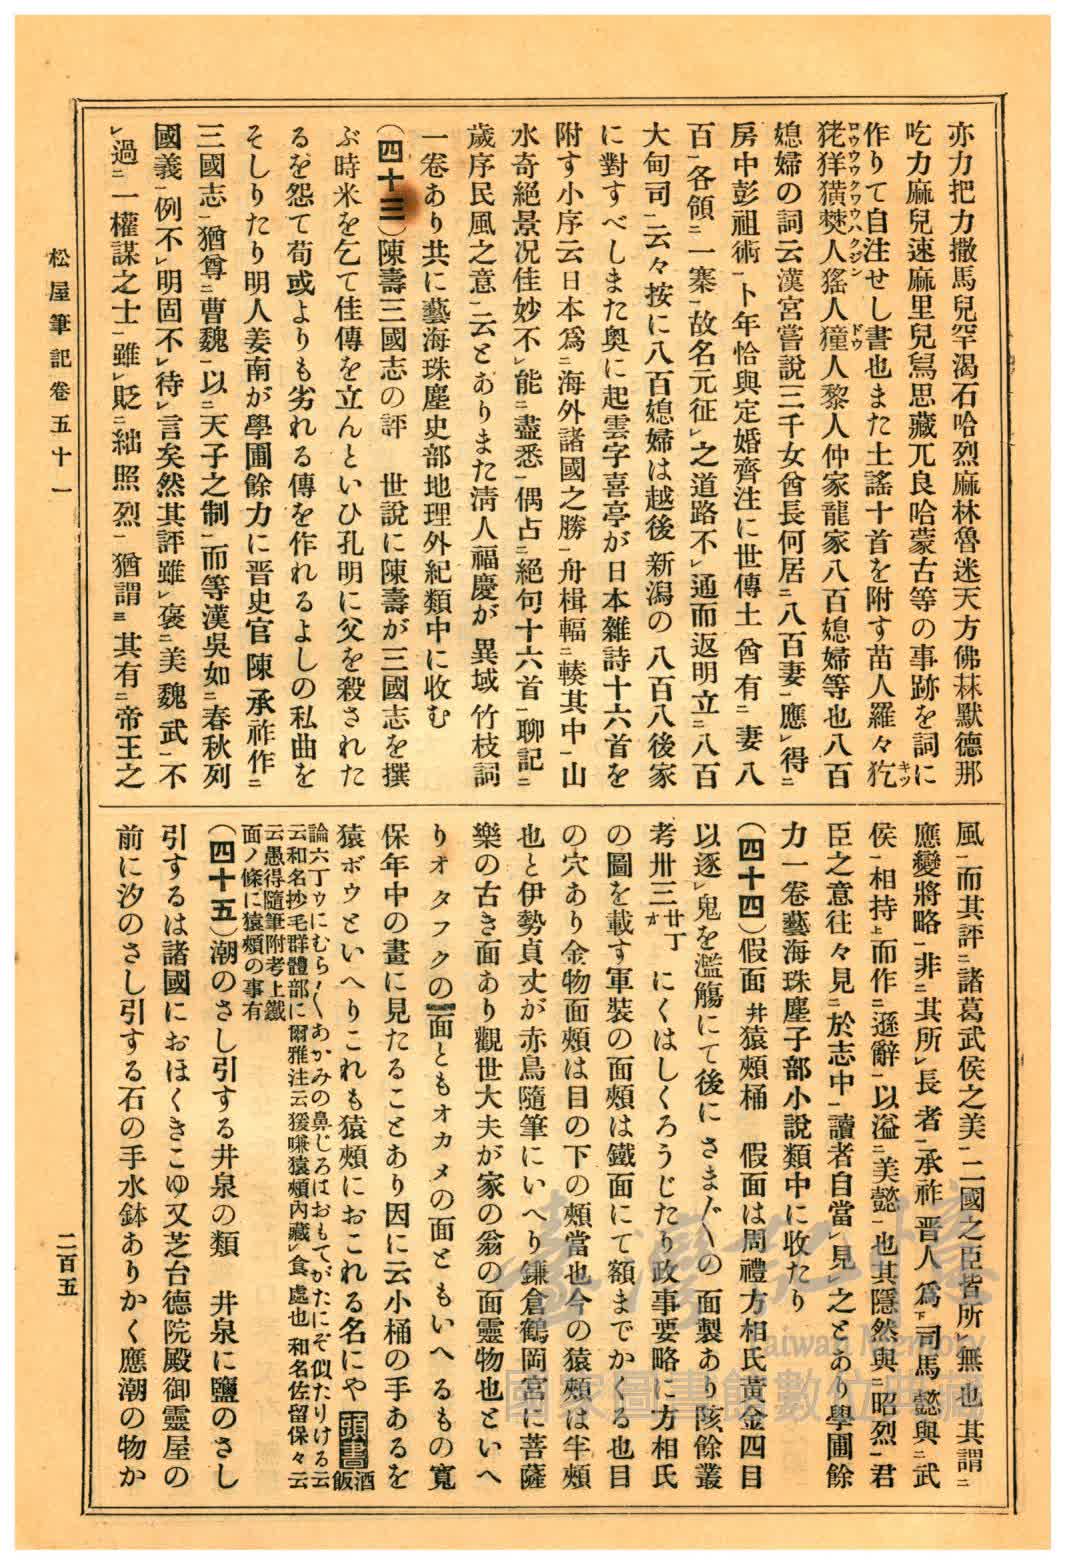 亦力把力撒馬兒罕渴石哈烈麻林魯迷天方佛菻默德那
吃力麻兒速麻里兒舄思藏兀良哈蒙古等の事跡を詞に
作りて自注せし書也また土謠十首を附す苗人羅々犵キツ
狫ロウ猚ウ獚クワウ僰ハク人ジン猺人獞ドウ人黎人仲家龍家八百媳婦等也八百
媳婦の詞云漢宮嘗說三千女酋長何居ニ八百妻一應レ得ニ
房中彭祖術一卜年恰與定婚齊注に世傳土酋有ニ妻八
百一各領ニ一寨一故名元征レ之道路不レ通而返明立ニ八百
大甸司一云々按に八百媳婦は越後新潟の八百八後家
に對すべしまた奧に起雲字喜亭が日本雜詩十六首を
附す小序云日本爲ニ海外諸國之勝一舟楫輻ニ輳其中一山
水奇絕景况佳妙不レ能ニ盡悉一偶占ニ絕句十六首一聊記ニ
歲序民風之意一云とありまた淸人福慶が異域竹枝詞
一卷あり共に藝海珠塵史部地理外紀類中に收む
(四十三)陳壽三國志の評 世說に陳壽が三國志を撰
ぶ時米を乞て佳傳を立んといひ孔明に父を殺された
るを怨て荀或よりも劣れる傳を作れるよしの私曲を
そしりたり明人姜南が學圃餘力に晋史官陳承祚作ニ
三國志一猶尊ニ曹魏一以ニ天子之制一而等漢吳如ニ春秋列
國義一例不レ明固不レ待レ言矣然其評雖レ褒ニ美魏武一不
レ過ニ一權謀之士一雖レ貶ニ絀照烈一猶謂三其有ニ帝王之
風一而其評ニ諸葛武侯之美一二國之臣皆所レ無也其謂ニ
應變將略一非ニ其所レ長者一承祚晋人爲下司馬懿與ニ武
侯一相持上而作ニ遜辭一以溢ニ美懿一也其隱然與ニ昭烈一君
臣之意往々見ニ於志中一讀者自當レ見レ之とあり學圃餘
力一卷藝海珠塵子部小說類中に收たり
(四十四)假面幷猿頰桶 假面は周禮方相氏黃金四目
以逐レ鬼を濫觴にて後にさま〲の面製あり陔餘叢
考卅三廿丁オにくはしくろうじたり政事要略に方相氏
の圖を載す軍裝の面頰は鐵面にて額までかくる也目
の穴あり金物面頰は目の下の頰當也今の猿頰は半頰
也と伊勢貞丈が赤鳥隨筆にいへり鎌倉鶴岡宮に菩薩
樂の古き面あり觀世大夫が家の翁の面靈物也といへ
りオタフクの面ともオカメの面ともいへるもの寬
保年中の畫に見たることあり因に云小桶の手あるを
猿ボウといへりこれも猿頰におこれる名にや頭書酒飯
論六丁ウにむら〱あかみの鼻じろはおもてがたにぞ似たりける云
云和名抄毛群體部に爾雅注云猨嗛猿頰內藏レ食處也和名佐留保々云
云愚得隨筆附考上鐵
面ノ條に猿頰の事有
(四十五)潮のさし引する井泉の類 井泉に鹽のさし
引するは諸國におほくきこゆ又芝台德院殿御靈屋の
前に汐のさし引する石の手水鉢ありかく應潮の物か
松屋筆記卷五十一
二百五
臺灣記憶
Taiwan Memory
國家圖書館數位典藏